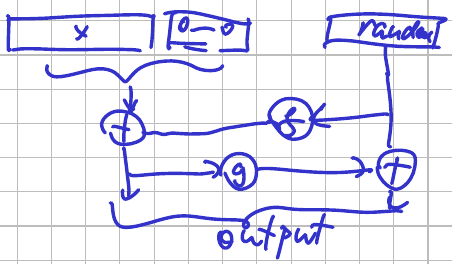 x 0—0 random
+ g
g +
output